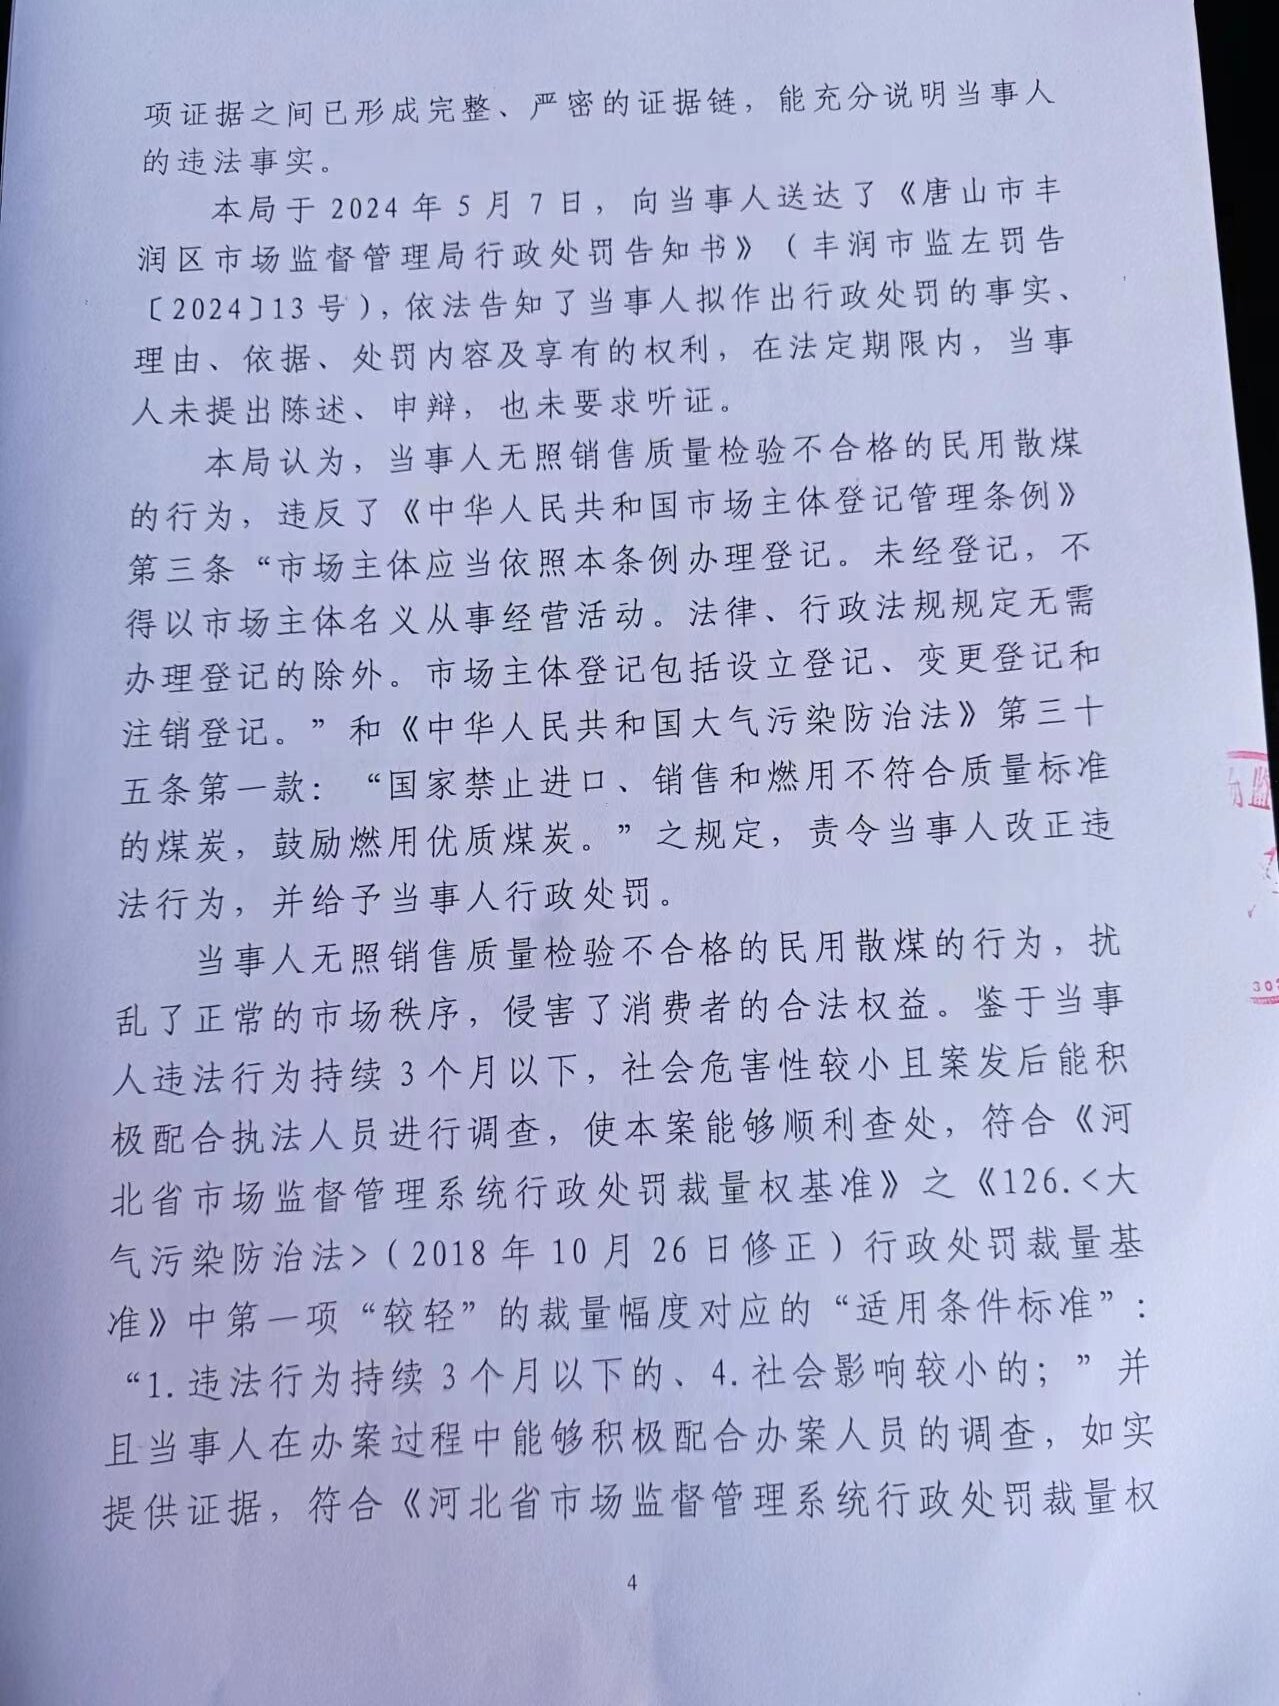 项证据之间已形成完整、严密的证据链，能充分说明当事人
的违法事实。
本局于 2024 年 5 月 7 日，向当事人送达了《唐山市丰
润区市场监督管理局行政处罚告知书》（丰润市监左罚告
〔2024〕13 号），依法告知了当事人拟作出行政处罚的事实、
理由、依据、处罚内容及享有的权利，在法定期限内，当事
人未提出陈述、申辩，也未要求听证。
本局认为，当事人无照销售质量检验不合格的民用散煤
的行为，违反了《中华人民共和国市场主体登记管理条例》
第三条“市场主体应当依照本条例办理登记。未经登记，不
得以市场主体名义从事经营活动。法律、行政法规规定无需
办理登记的除外。市场主体登记包括设立登记、变更登记和
注销登记。”和《中华人民共和国大气污染防治法》第三十
五条第一款：“国家禁止进口、销售和燃用不符合质量标准
的煤炭，鼓励燃用优质煤炭。”之规定，责令当事人改正违
法行为，并给予当事人行政处罚。
当事人无照销售质量检验不合格的民用散煤的行为，扰
乱了正常的市场秩序，侵害了消费者的合法权益。鉴于当事
人违法行为持续 3 个月以下，社会危害性较小且案发后能积
极配合执法人员进行调查，使本案能够顺利查处，符合《河
北省市场监督管理系统行政处罚裁量权基准》之《126.<大
气污染防治法>（2018 年 10 月 26 日修正）行政处罚裁量基
准》中第一项“较轻”的裁量幅度对应的“适用条件标准”：
“1.违法行为持续 3 个月以下的、4.社会影响较小的；”并
且当事人在办案过程中能够积极配合办案人员的调查，如实
提供证据，符合《河北省市场监督管理系统行政处罚裁量权
4